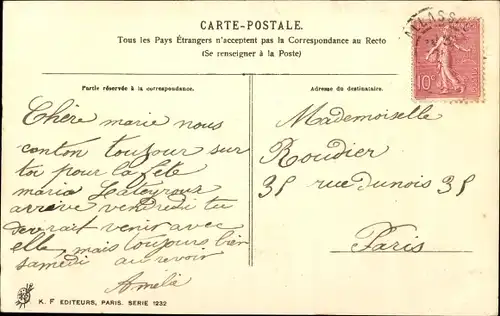 CARTE-POSTALE.
Tous les Pays Étrangers n'acceptent pas la Correspondance au Recto
(Se renseigner à la Poste)
Partie réservée à la correspondance.
Adresse du destinataire.
ALLASSAC
10c
Chère marie nous
conton toujour sur
toi pour la fête
maria Lateyroux
arrive vendredi tu
devrait venir avec
elle, mais toujours bien
samedi au revoir
Amélie
Mademoiselle
Roudier
35 rue dunois 35
Paris
K. F EDITEURS, PARIS. SERIE 1232